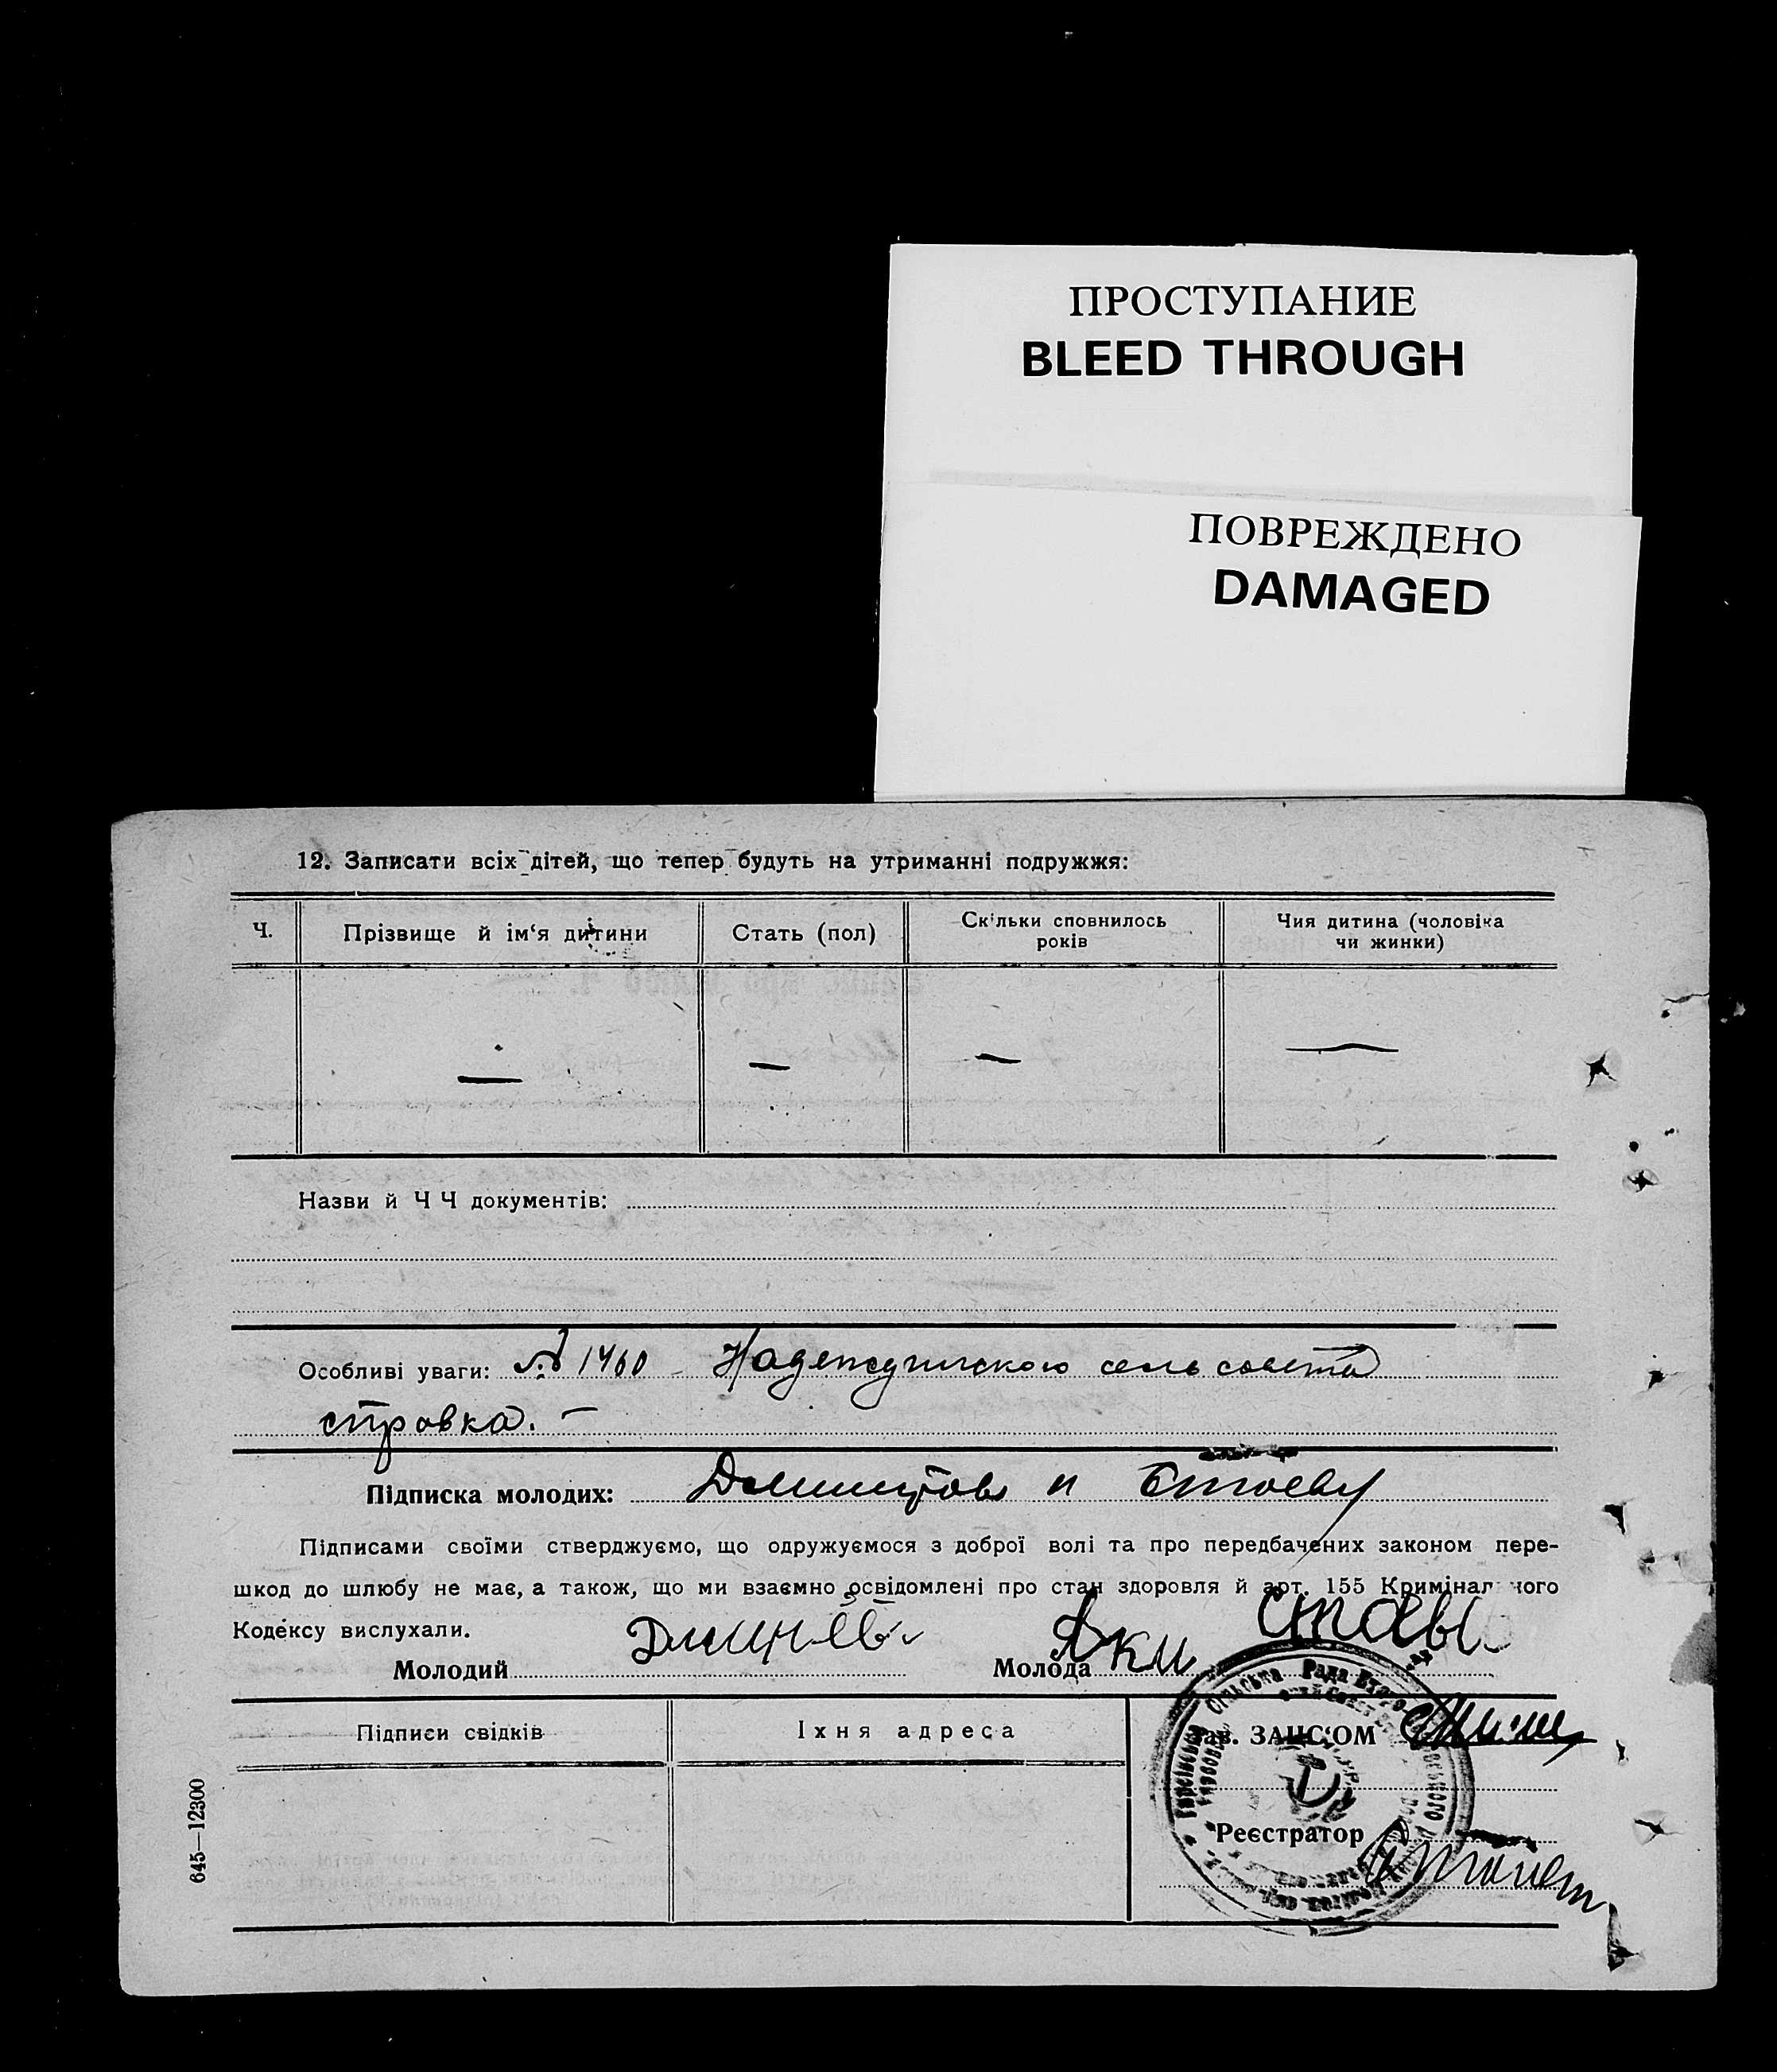 ПРОСТУПАНИЕ
BLEED THROUGH
ПОВРЕЖДЕНО
DAMAGED
12. Записати всіх дітей, що тепер будуть на утриманні подружжя:
Ч.
Прізвище й ім‘я дитини
Стать (пол)
Скільки сповнилось
років
Чия дитина (чоловіка
чи жинки)
— — — —
Назви й Ч Ч документів:
Особливі уваги: № 1460 сельсовета
справка. —
Підписка молодих: и
Підписами своїми стверджуємо, що одружуємося з доброї волі та про передбачених законом пере-
шкод до шлюбу не має, а також, що ми взаємно освідомлені про стан здоровля й арт. 155 Криміналчого
Кодексу вислухали.
Молодий
Молода
Підписи свідків
Їхня адреса
Зав. ЗАПС‘ОМ
Реєстратор
Сільська Рада
645—12300